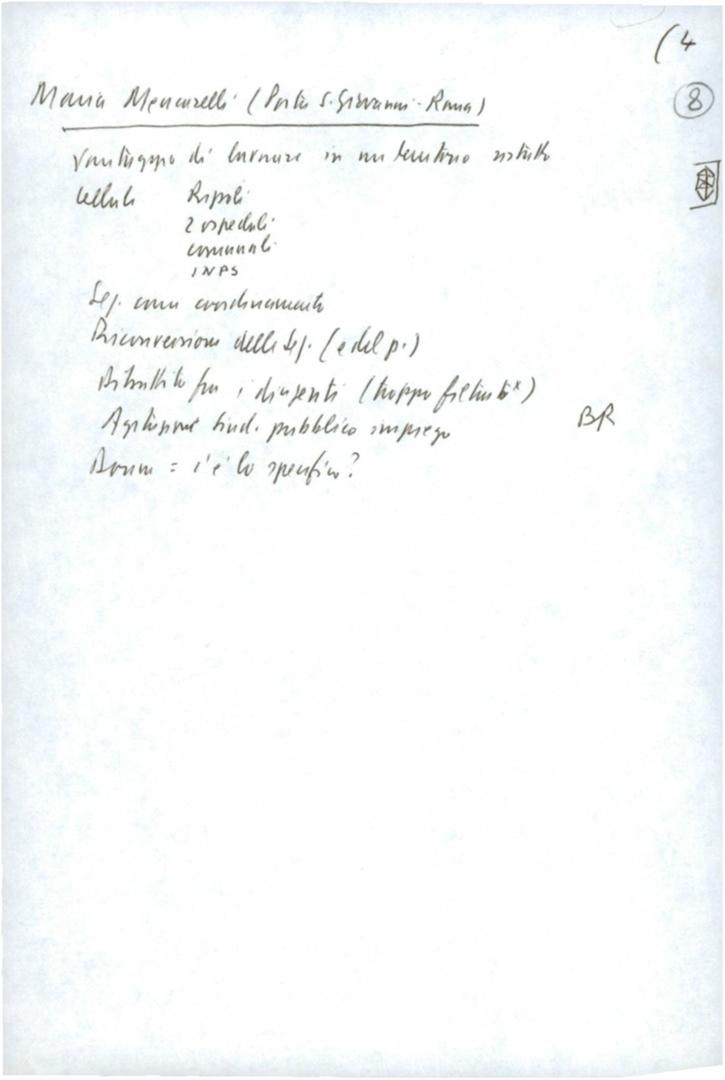 (4
8
Maria Mencarelli (Porta S. Giovanni - Roma)
Vantaggio di lavorare in un territorio ristretto
Cellule Ripoli
2 ospedali
comunali
INPS
Sez. come coordinamento
Riconversione delle Sez. (e del p.)
Dibattito fra i dirigenti (troppo
Agitazione sind. pubblico impiego
BR
Donne = c'è lo specifico?